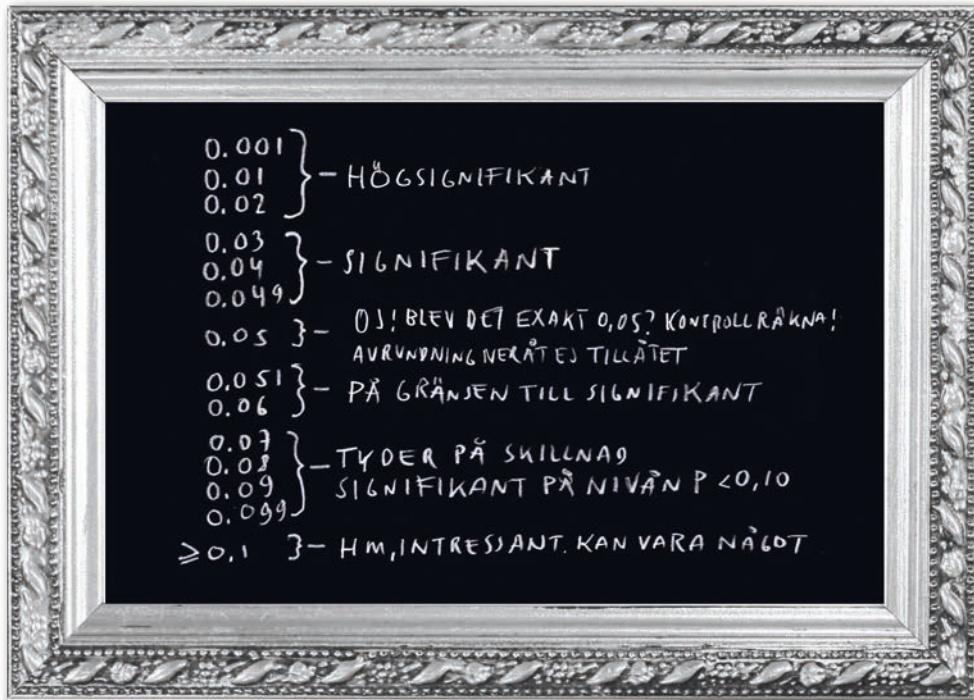 0.001
0.01 } – HÖGSIGNIFIKANT
0.02
0.03
0.04 } – SIGNIFIKANT
0.049
0.05 } – OJ! BLEV DET EXAKT 0,05? KONTROLLRÄKNA!
AVRUNDNING NERÅT EJ TILLÅTET
0.051 } – PÅ GRÄNSEN TILL SIGNIFIKANT
0.06
0.07
0.08 } – TYDER PÅ SKILLNAD
0.09 SIGNIFIKANT PÅ NIVÅN P <0,10
0.099
≥0,1 } – HM, INTRESSANT. KAN VARA NÅGOT